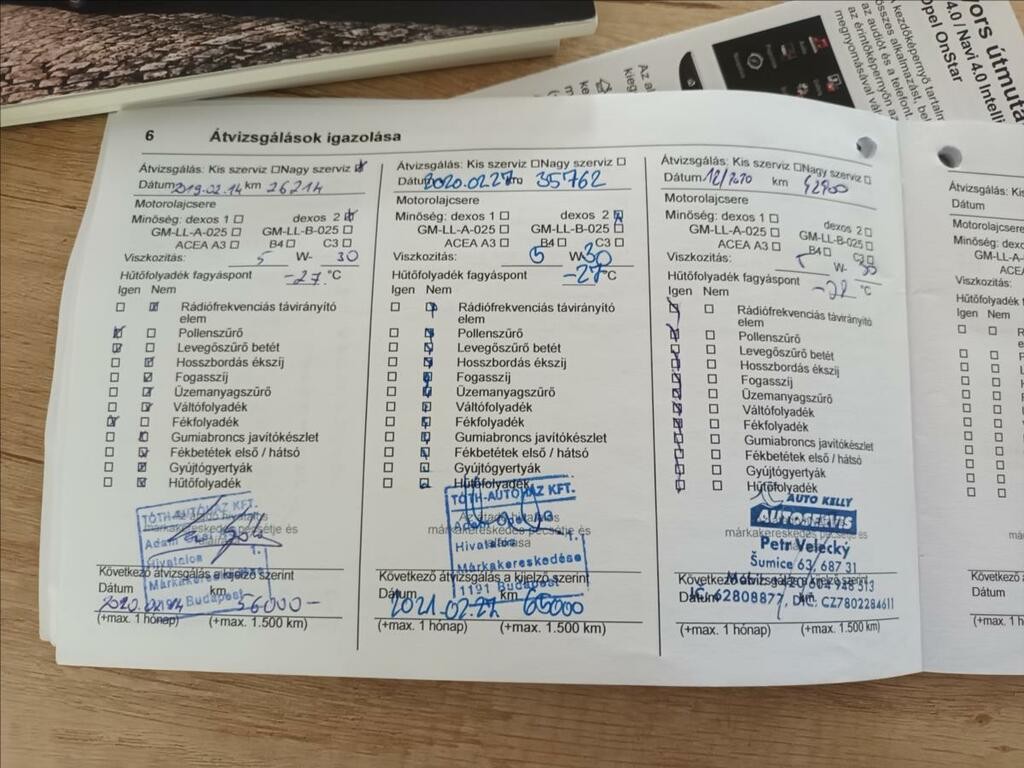 yors útmuta
4.0 / Navi 4.0 Intelli
Opel OnStar
kezdőképernyő tartalm
összes alkalmazást, be
az audiót és a telefont.
az érintőképernyőn az
megnyomásával vál
Az al
kieg
6 Átvizsgálások igazolása
Átvizsgálás: Kis szerviz ☐ Nagy szerviz ☒
Dátum 2019.02.14 km 26214
Motorolajcsere
Minőség: dexos 1 ☐ dexos 2 ☒
GM-LL-A-025 ☐ GM-LL-B-025 ☐
ACEA A3 ☐ B4 ☐ C3 ☐
Viszkozitás: 5 W- 30
Hűtőfolyadék fagyáspont -27 °C
Igen Nem
☐ ☒ Rádiófrekvenciás távirányító
elem
☒ ☐ Pollenszűrő
☒ ☐ Levegőszűrő betét
☐ ☒ Hosszbordás ékszíj
☐ ☒ Fogasszíj
☐ ☒ Üzemanyagszűrő
☐ ☒ Váltófolyadék
☒ ☐ Fékfolyadék
☐ ☒ Gumiabroncs javítókészlet
☐ ☒ Fékbetétek első / hátsó
☐ ☒ Gyújtógyertyák
☐ ☒ Hűtőfolyadék
TÓTH-AUTÓHÁZ KFT.
márkakereskedés pecsétje és
Adam Opel
Hivatalos
Márkakereskedése
Budapest
Következő átvizsgálás a kijelző szerint
Dátum km
2020.02.14 56000-
(+max. 1 hónap) (+max. 1.500 km)
Átvizsgálás: Kis szerviz ☐ Nagy szerviz ☐
Dátum 2020.02.27 km 35762
Motorolajcsere
Minőség: dexos 1 ☐ dexos 2 ☒
GM-LL-A-025 ☐ GM-LL-B-025 ☐
ACEA A3 ☐ B4 ☐ C3 ☐
Viszkozitás: 5 W- 30
Hűtőfolyadék fagyáspont -27 °C
Igen Nem
☐ ☒ Rádiófrekvenciás távirányító
elem
☐ ☒ Pollenszűrő
☐ ☒ Levegőszűrő betét
☐ ☒ Hosszbordás ékszíj
☐ ☒ Fogasszíj
☐ ☒ Üzemanyagszűrő
☐ ☒ Váltófolyadék
☐ ☒ Fékfolyadék
☐ ☒ Gumiabroncs javítókészlet
☐ ☒ Fékbetétek első / hátsó
☐ ☒ Gyújtógyertyák
☐ ☒ Hűtőfolyadék
TÓTH-AUTÓHÁZ KFT.
Adam Opel AG
márkakereskedés pecsétje és
Hivatalos
Márkakereskedése
1191 Budapest
Következő átvizsgálás a kijelző szerint
Dátum km
2021.02.27 65000
(+max. 1 hónap) (+max. 1.500 km)
Átvizsgálás: Kis szerviz ☐ Nagy szerviz ☐
Dátum 12/2020 km 42900
Motorolajcsere
Minőség: dexos 1 ☐ dexos 2 ☐
GM-LL-A-025 ☐ GM-LL-B-025 ☐
ACEA A3 ☐ B4 ☐ C3 ☐
Viszkozitás: 5 W- 30
Hűtőfolyadék fagyáspont -22 °C
Igen Nem
☒ ☐ Rádiófrekvenciás távirányító
elem
☒ ☐ Pollenszűrő
☒ ☐ Levegőszűrő betét
☒ ☐ Hosszbordás ékszíj
☒ ☐ Fogasszíj
☒ ☐ Üzemanyagszűrő
☒ ☐ Váltófolyadék
☒ ☐ Fékfolyadék
☒ ☐ Gumiabroncs javítókészlet
☒ ☐ Fékbetétek első / hátsó
☒ ☐ Gyújtógyertyák
☒ ☐ Hűtőfolyadék
AUTO KELLY
AUTOSERVIS
márkakereskedés pecsétje és
Petr Velecký
Šumice 63, 687 31
Következő átvizsgálás a kijelző szerint
Dátum km
IČ: 62808877, DIČ: CZ7802284611
(+max. 1 hónap) (+max. 1.500 km)
Átvizsgálás: Kis
Dátum
Motorolajcsere
Minőség: dexo
GM-LL-A
ACEA
Viszkozitás:
Hűtőfolyadék f
Igen Nem
Következő
Dátum
(+max. 1 h